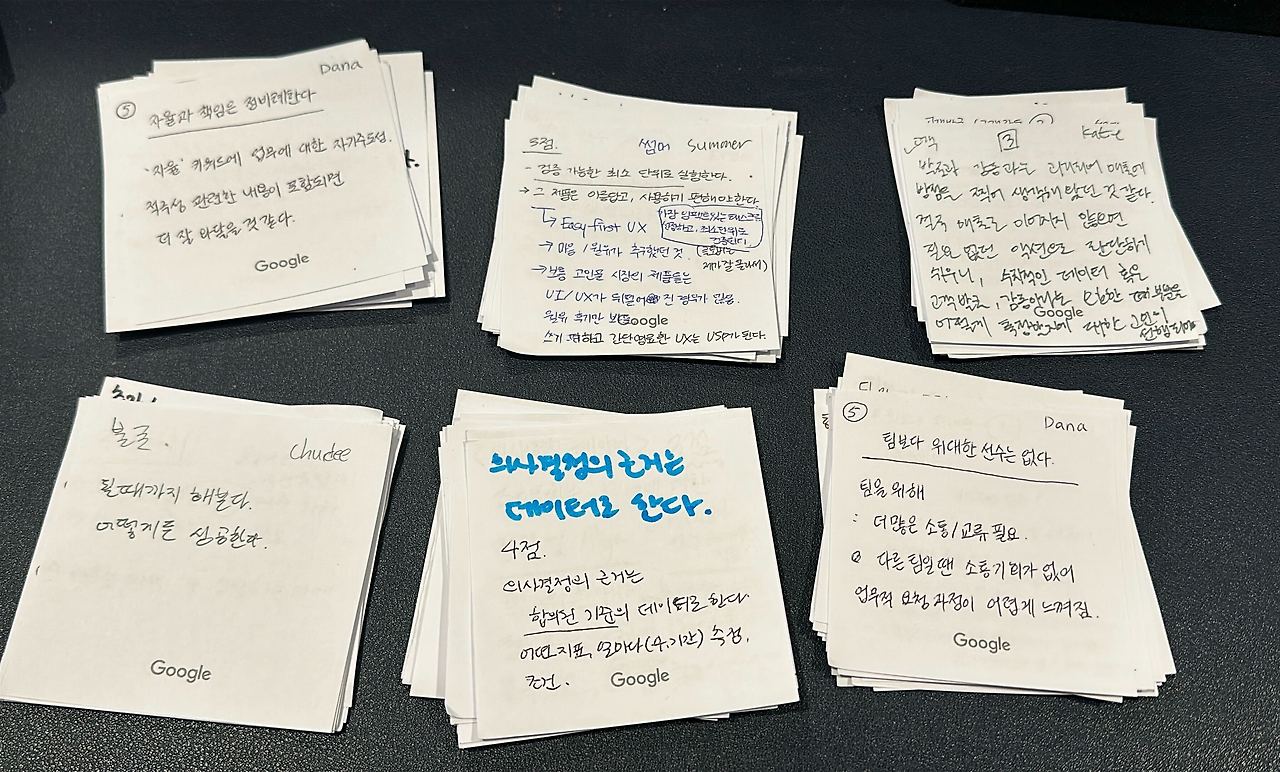 Dana
⑤ 자율과 책임은 정비례한다
'자율' 키워드에 업무에 대한 자기주도성,
적극성 관련한 내용이 포함되면
더 잘 와닿을 것 같다.
Google
5점. 썸머 Summer
- 검증 가능한 최소 단위로 실험한다.
→ 그 제품은 아름답고, 사용하기 편해야 한다.
↳ Easy-first UX
가장 임팩트있는 태스크를
최소단위로
→ 마음 / 원우가 추구했던 것
→ 보통 고인물 시장의 제품들은
UI/UX가 뒤떨어진 경우가 있음.
Google
쓰기 편하고 간단명료한 UX는 USP가 된다.
고객 3 Katie
만족과 감동이라는
방법은 적어 생각해 왔던 것 같다.
결국 매출로 이어지지 않으면
필요 없던 액션으로 판단하기
쉬우니, 수치적인 데이터 혹은
Google
어떻게 확장할지에 대한 고민이
불굴.
Chudee
될때까지 해본다.
어떻게든 성공한다.
Google
의사결정의 근거는
데이터로 한다.
4점.
의사결정의 근거는
합의된 기준의 데이터로 한다
어떤지표, 얼마나(수, 기간) 측정,
조건.
Google
⑤ Dana
팀보다 위대한 선수는 없다.
팀을 위해
: 더 많은 소통/교류 필요.
다른 팀일 땐 소통기회가 없어
업무적 요청 과정이 어렵게 느껴짐.
Google